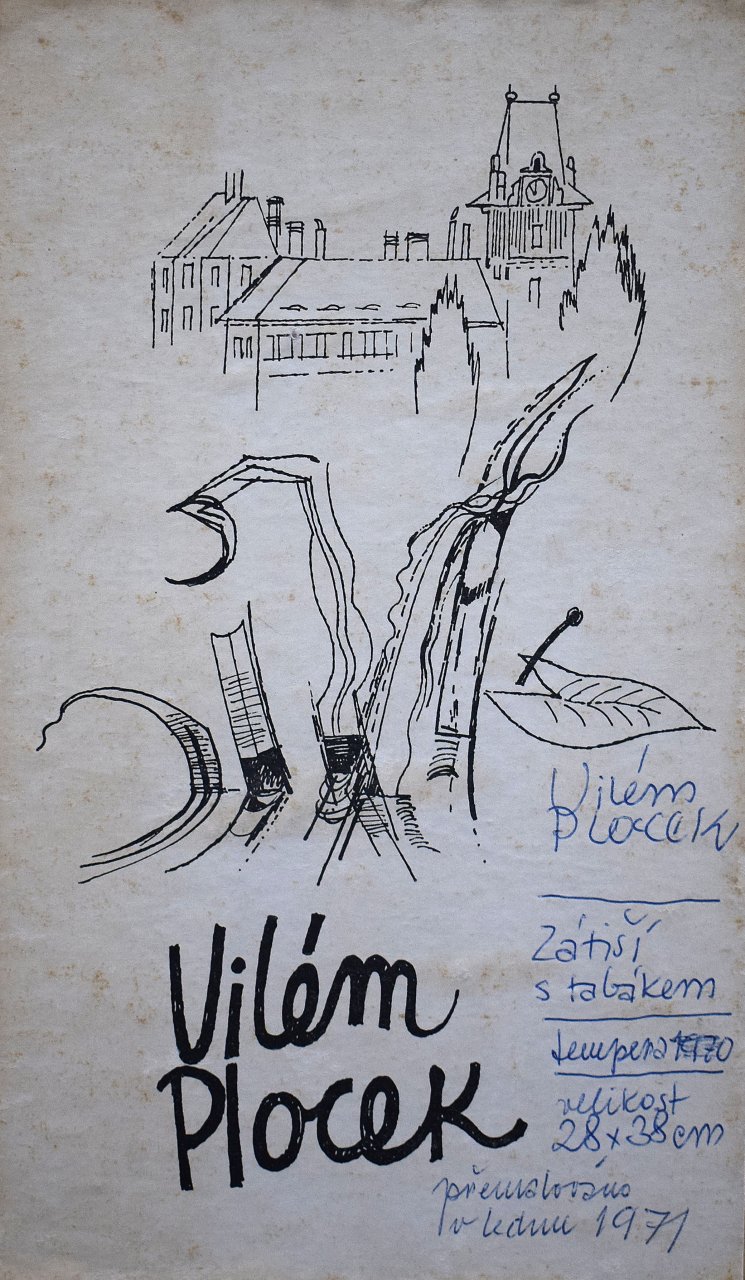 Vilém
PLOCEK
Zátiší
s tabákem
tempera 1970
velikost
28x38cm
Vilém
Plocek
přemalováno
v lednu 1971